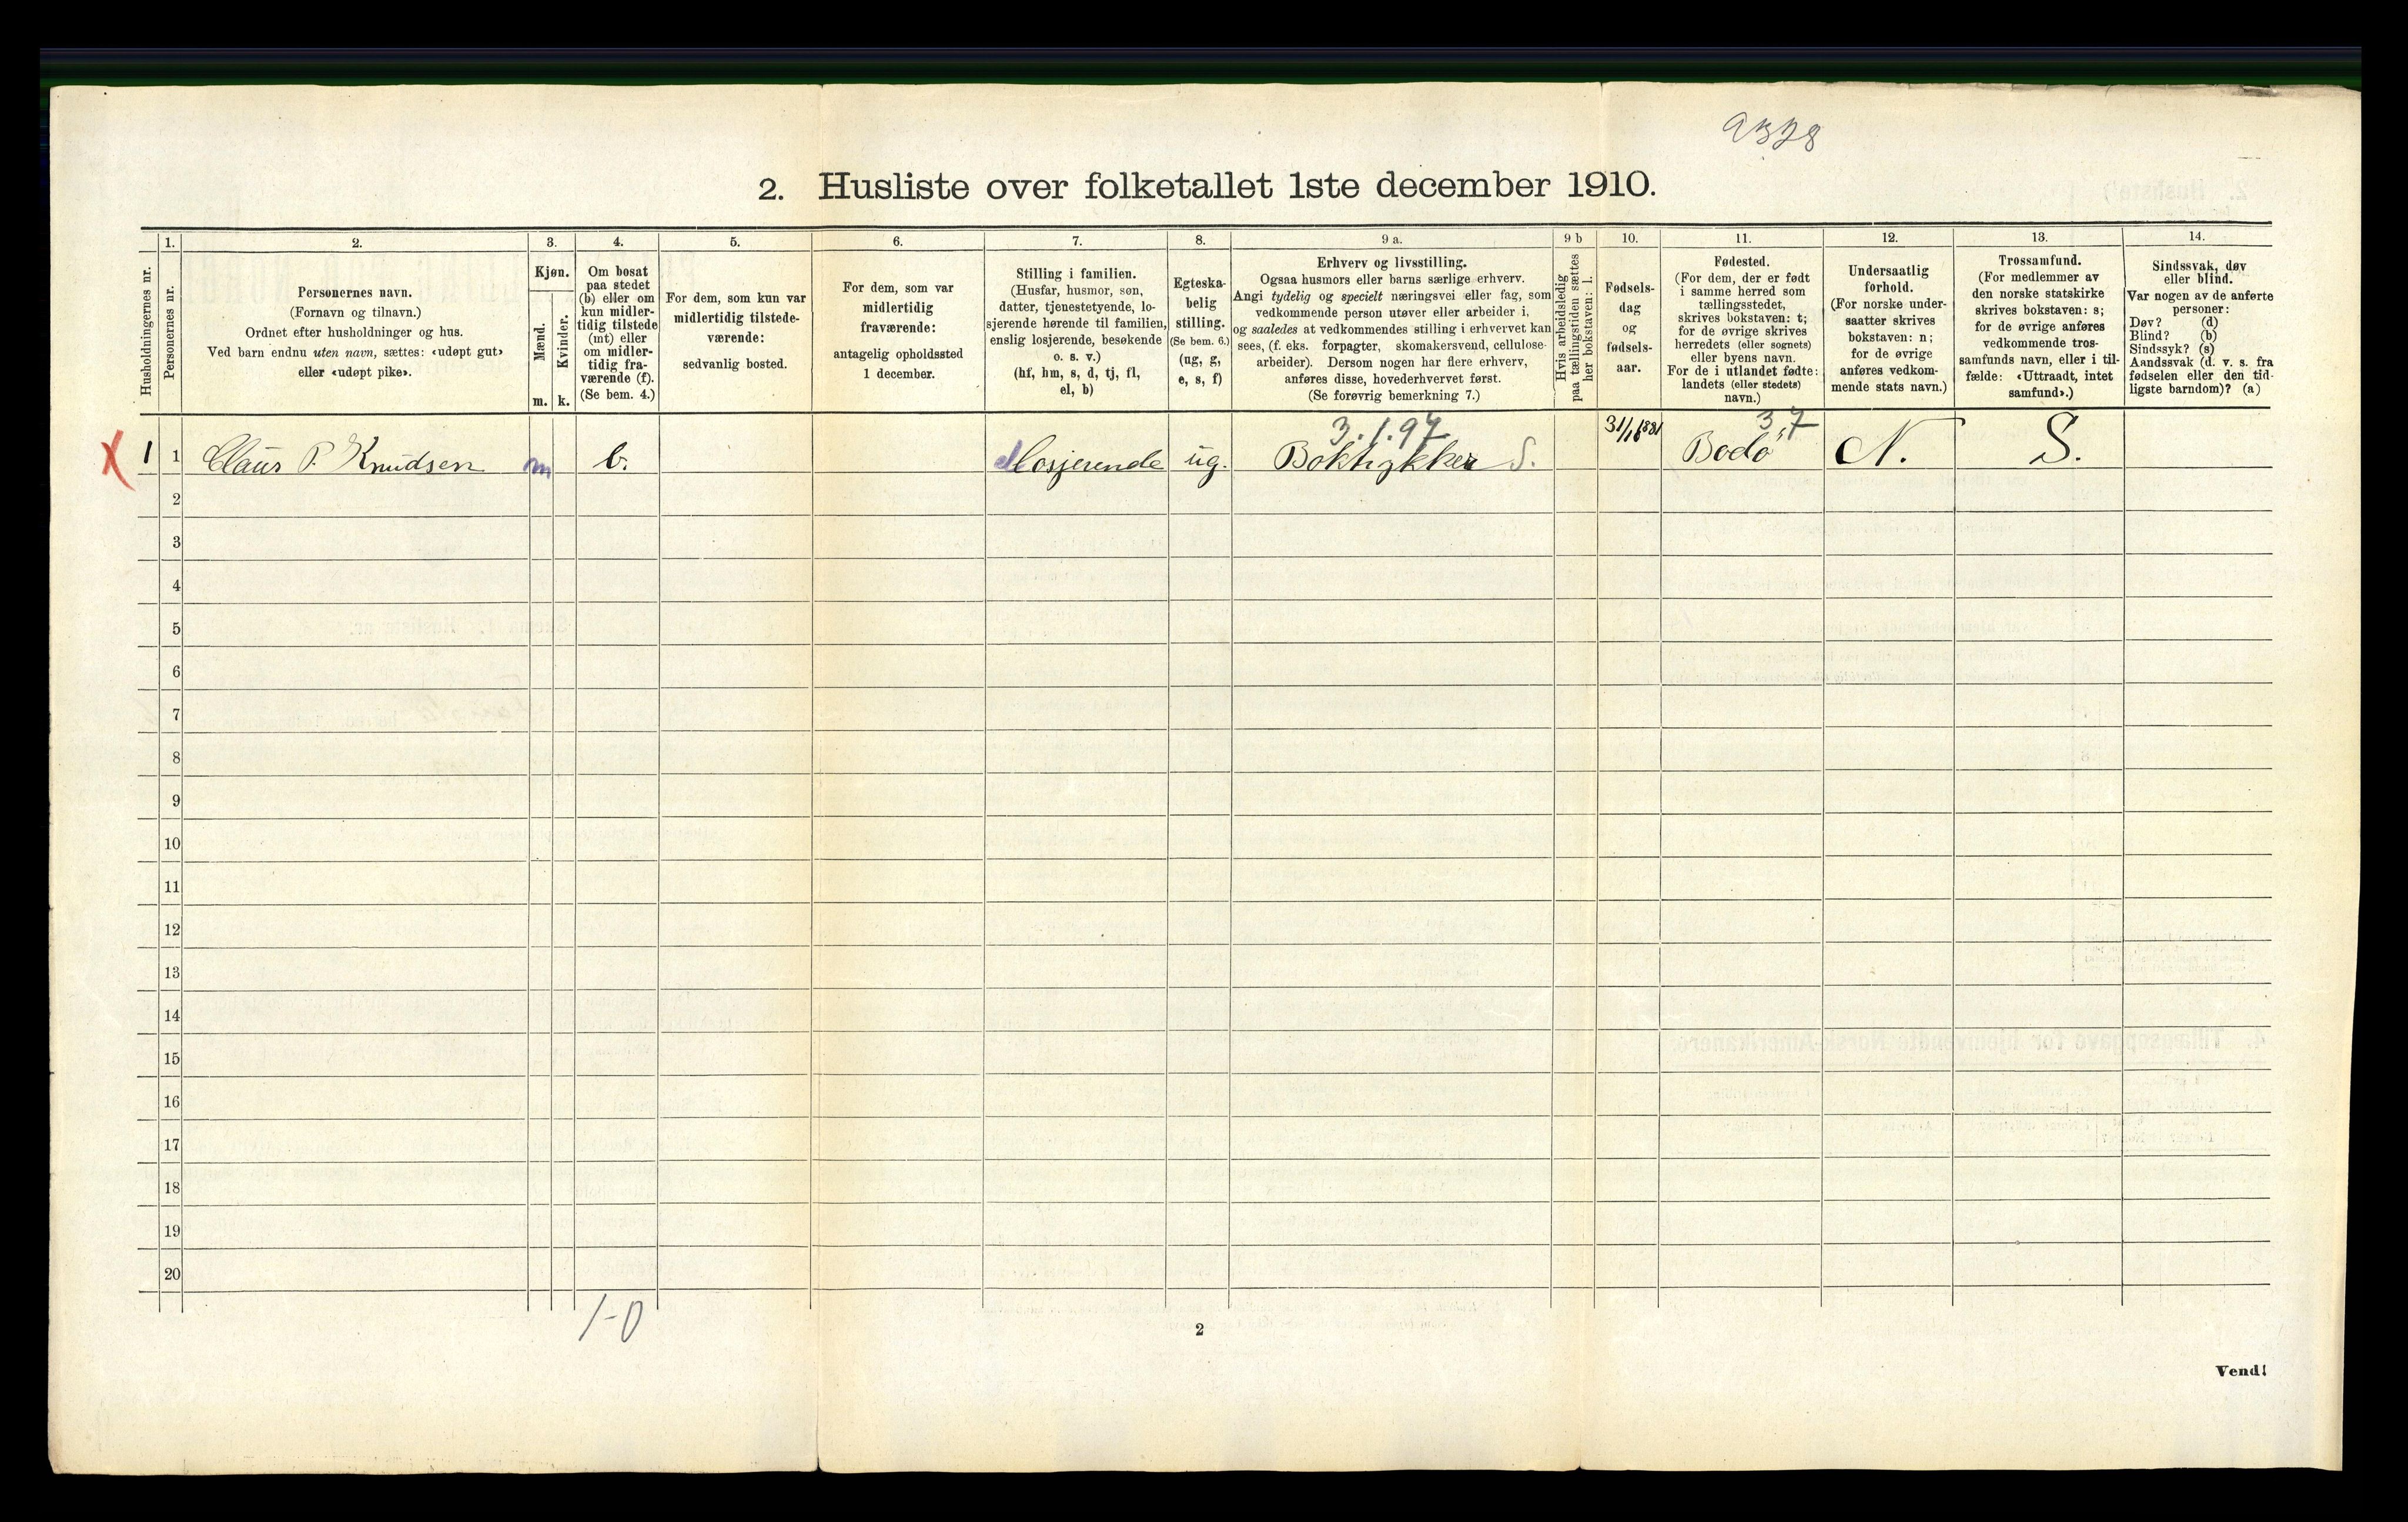 9378
2. Husliste over folketallet 1ste december 1910.
Husholdningernes nr.
1.
Personernes nr.
2.
Personernes navn.
(Fornavn og tilnavn.)
Ordnet efter husholdninger og hus.
Ved barn endnu uten navn, sættes: «udøpt gut»
eller «udøpt pike».
3.
Kjøn.
Mænd.
Kvinder.
m. k.
4.
Om bosat
paa stedet
(b) eller om
kun midler-
tidig tilstede
(mt) eller
om midler-
tidig fra-
værende (f).
(Se bem. 4.)
5.
For dem, som kun var
midlertidig tilstede-
værende:
sedvanlig bosted.
6.
For dem, som var
midlertidig
fraværende:
antagelig opholdssted
1 december.
7.
Stilling i familien.
(Husfar, husmor, søn,
datter, tjenestetyende, lo-
sjerende hørende til familien,
enslig losjerende, besøkende
o. s. v.)
(hf, hm, s, d, tj, fl,
el, b)
8.
Egteska-
belig
stilling.
(Se bem. 6.)
(ug, g,
e, s, f)
9 a.
Erhverv og livsstilling.
Ogsaa husmors eller barns særlige erhverv.
Angi tydelig og specielt næringsvei eller fag, som
vedkommende person utøver eller arbeider i,
og saaledes at vedkommendes stilling i erhvervet kan
sees, (f. eks. forpagter, skomakersvend, cellulose-
arbeider). Dersom nogen har flere erhverv,
anføres disse, hovederhvervet først.
(Se forøvrig bemerkning 7.)
9 b
Hvis arbeidsledig
paa tællingstiden sættes
her bokstaven: l.
10.
Fødsels-
dag
og
fødsels-
aar.
11.
Fødested.
(For dem, der er født
i samme herred som
tællingsstedet,
skrives bokstaven: t;
for de øvrige skrives
herredets (eller sognets)
eller byens navn.
For de i utlandet fødte:
landets (eller stedets)
navn.)
12.
Undersaatlig
forhold.
(For norske under-
saatter skrives
bokstaven: n;
for de øvrige
anføres vedkom-
mende stats navn.)
13.
Trossamfund.
(For medlemmer av
den norske statskirke
skrives bokstaven: s;
for de øvrige anføres
vedkommende tros-
samfunds navn, eller i til-
fælde: «Uttraadt, intet
samfund».)
14.
Sindssvak, døv
eller blind.
Var nogen av de anførte
personer:
Døv? (d)
Blind? (b)
Sindssyk? (s)
Aandssvak (d. v. s. fra
fødselen eller den tid-
ligste barndom)? (a)
3.1.97 37
X 1 1 Claus P. Knudsen m b. el Losjerende ug. Boktrykker S. 31/1 1881 Bodø N. S.
2
3
4
5
6
7
8
9
10
11
12
13
14
15
16
17
18
19
20
1-0
2
Vend!